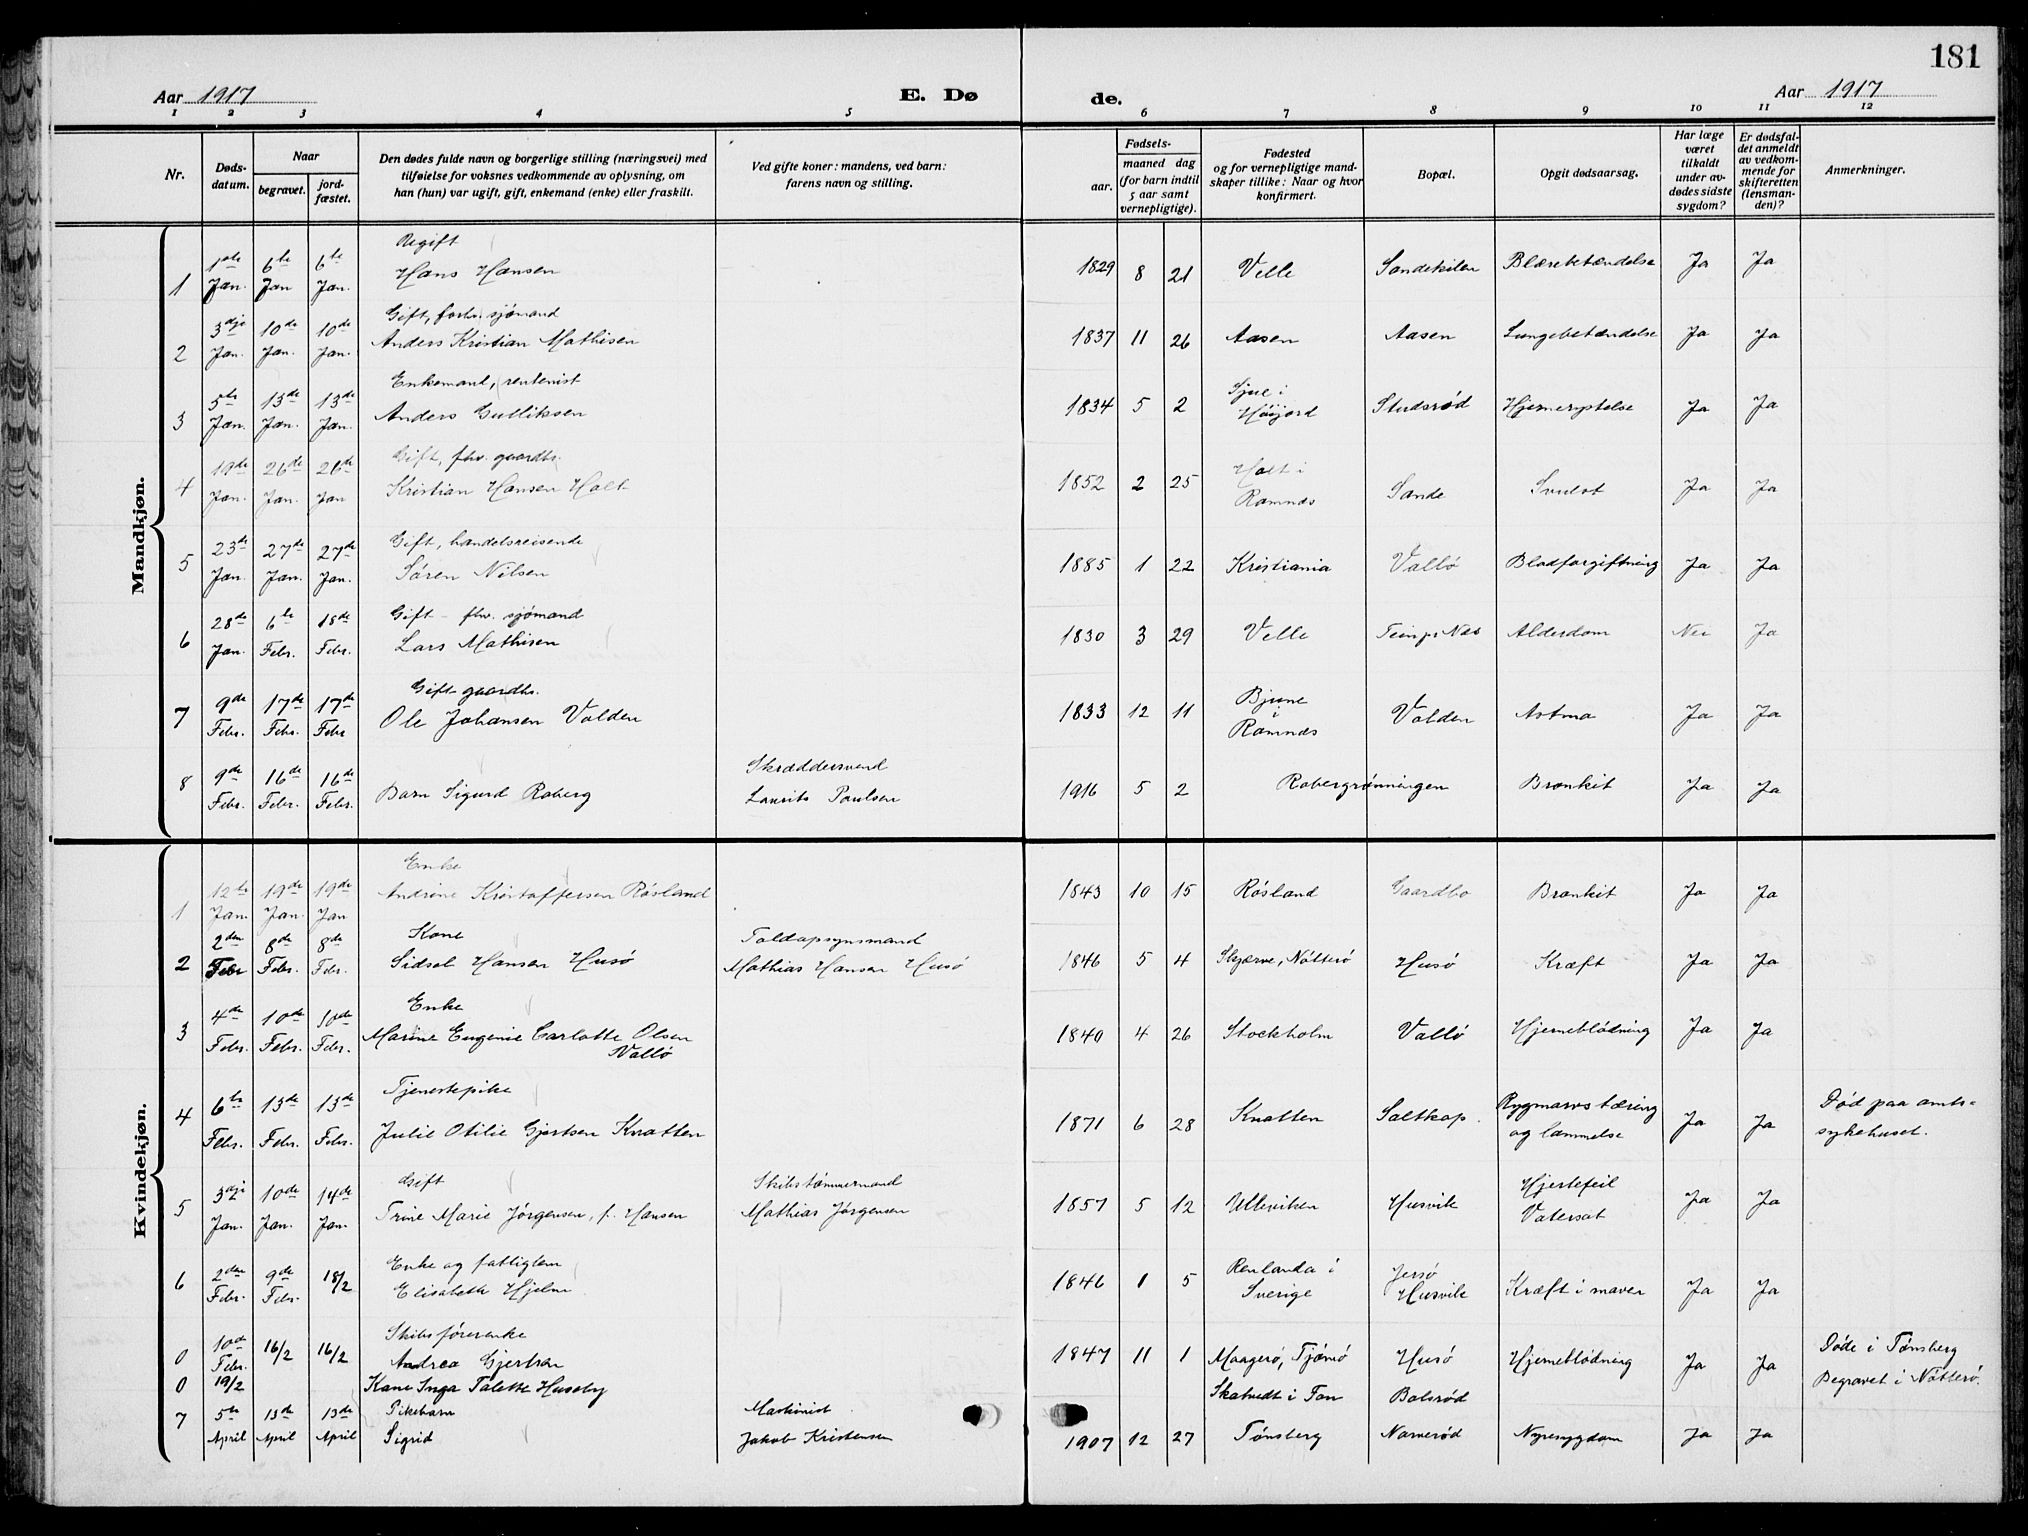 181
Aar 1917 E. Dø de. Aar 1917
1 2 3 4 5 6 7 8 9 10 11 12
Nr.
Døds-
datum.
Naar
begravet.
jord-
fæstet.
Den dødes fulde navn og borgerlige stilling (næringsvei) med
tilføielse for voksnes vedkommende av oplysning, om
han (hun) var ugift, gift, enkemand (enke) eller fraskilt.
Ved gifte koner: mandens, ved barn:
farens navn og stilling.
Fødsels-
aar.
maaned dag
(for barn indtil
5 aar samt
vernepligtige).
Fødested
og for vernepligtige mand-
skaper tillike: Naar og hvor
konfirmert.
Bopæl.
Opgit dødsaarsag.
Har læge
været
tilkaldt
under av-
dødes sidste
sygdom?
Er dødsfal-
det anmeldt
av vedkom-
mende for
skifteretten
(lensman-
den)?
Anmerkninger.
Mandkjøn.
1 1ste Jan. 6te Jan 6te Jan.
Ugift
Hans Hansen
1829 8 21 Velle Sandekilen Blærebetændelse Ja Ja
2 3dje Jan. 10de Jan. 10de Jan.
Gift, forhv. sjømand
Anders Kristian Mathisen
1837 11 26 Aasen Aasen Lungebetændelse Ja Ja
3 5te Jan. 13de Jan. 13de Jan.
Enkemand, rentenist
Anders Gulliksen
1834 5 2 Sjue i
Høijord Studsrød Hjernerystelse Ja Ja
4 19de Jan. 26de Jan. 26de Jan
Gift, fhv. gaardbr.
Kristian Hansen Holt
1852 2 25 Holt i
Ramnæs Sande Svulst Ja Ja
5 23de Jan. 27de Jan. 27de Jan.
Gift, handelsreisende
Sören Nilsen
1885 1 22 Kristiania Vallö Blodforgiftning Ja Ja
6 28de Jan. 6te Febr. 18de Febr.
Gift - fhv. sjömand
Lars Mathisen
1830 3 29 Velle Næs Alderdom Nei Ja
7 9de Febr. 17de Febr. 17de Febr
Gift gaardbr.
Ole Johansen Valden
1833 12 11 Bjune
i
Ramnæs Valden Astma Ja Ja
8 9de Febr. 16de Febr. 16de Febr.
Barn Sigurd Roberg
Skræddersvend
Laurits Paulsen
1916 5 2 Robergrønningen Bronkit Ja Ja
Kvindekjøn.
1 12te Jan. 19de Jan. 19de Jan
Enke
Andrine Kristoffersen Røsland
1843 10 15 Røsland Gaardbo Bronkit Ja Ja
2 2den Febr 8de Febr. 8de Febr.
Kone
Sidsel Hansen Husö
Toldopsynsmand
Mathias Hansen Husö
1846 5 4 Skjerve, Nötterö Husö Kræft Ja Ja
3 4de Febr. 10de Febr. 10de Febr.
Enke
Marine Eugenie Carlotte Olsen
Vallö
1840 4 26 Stockholm Vallö Hjerneblödning Ja Ja
4 6te Febr. 13de Febr. 13de Febr.
Tjenestepike
Julie Otilie Gjertsen Knatten
1871 6 28 Knatten Saltkop. Rygmarvstæring
og lammelse Ja Ja Död paa amts-
sykehuset.
5 3dje Jan. 10de Jan. 14de Jan.
Gift
Trine Marie Jörgensen, f. Hansen
Skibstømmermand
Mathias Jörgensen
1857 5 12 Ulleviken Husvik Hjertefeil
Vatersot Ja Ja
6 2den Febr. 9de Febr. 18/2
Enke og fattiglem
Elisabeth Hjelm
1846 1 5 Renlanda i
Sverige Jersö
Husvik Kræft i maven Ja Ja
0 10de Febr. 16/2 16/2
Skibsförerenke
Andrea Gjertsen
1847 11 1 Maagerö, Tjömö Husö Hjerneblödning Ja Ja Döde i Tønsberg
Begravet i Nötterö.
0 19/2 Kone Inga Talette Huseby
Skatvedt i Fon Bolsröd
7 5te April 13de April 13de April
Pikebarn
Sigrid
Maskinist
Jakob Kristensen
1907 12 27 Tønsberg Narverød Nyresygdom Ja Ja